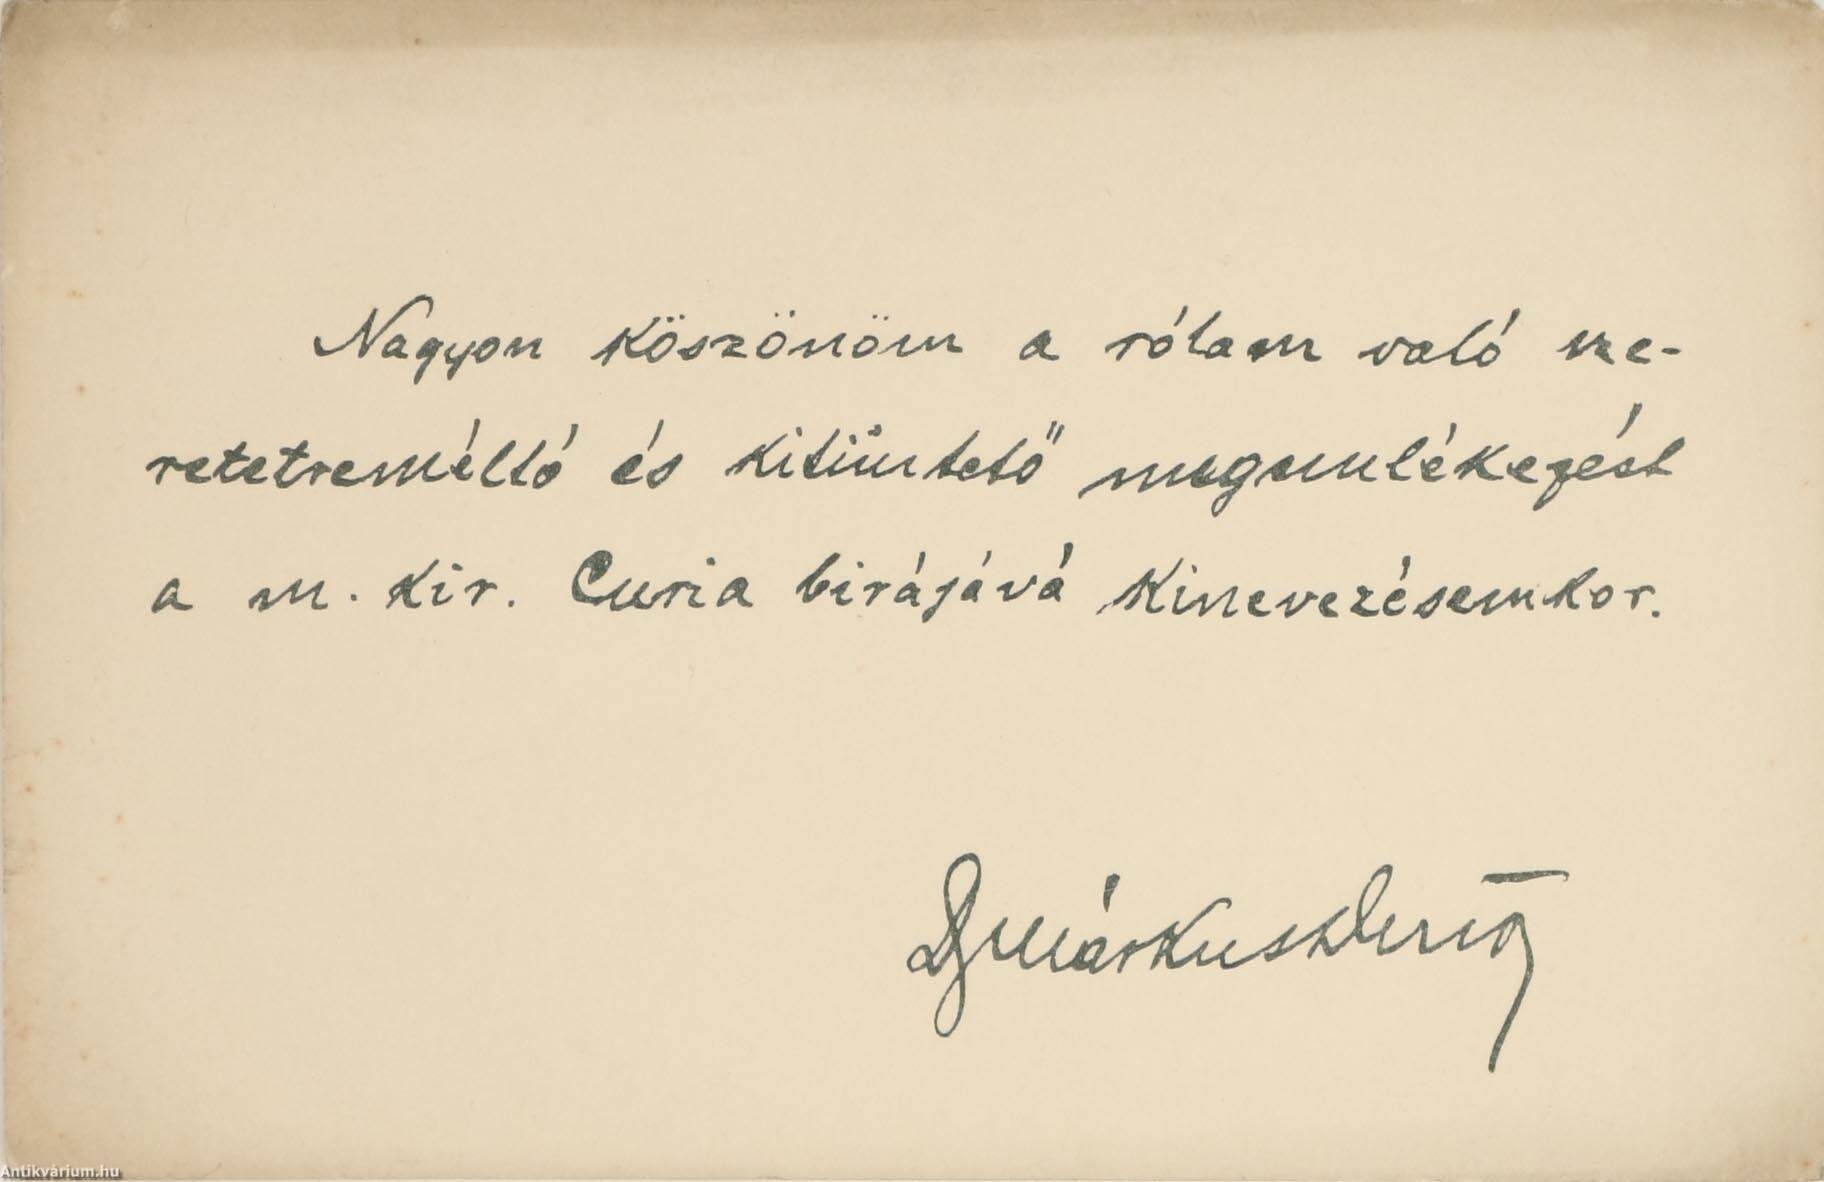 Nagyon köszönöm a rólam való sze-
retetreméltó és kitüntető megemlékezést
a m. kir. Curia birájává kinevezésemkor.
Dr Márkus Dezső
Antikvárium.hu